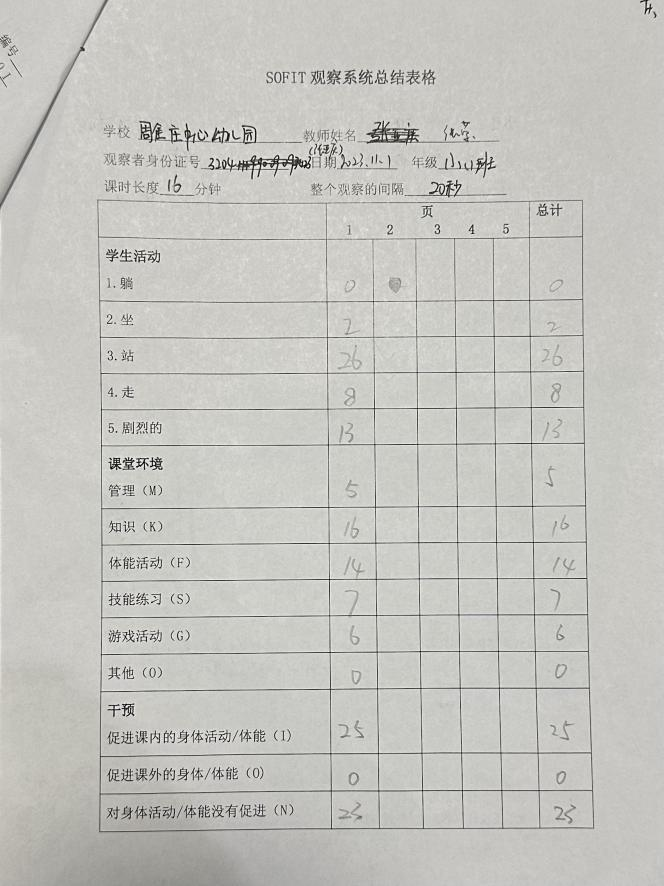 编号
SOFIT 观察系统总结表格
学校 周庄中心幼儿园 教师姓名
观察者身份证号 3204 日期 2023.11.1 年级 小小班
课时长度 16 分钟 整个观察的间隔 20秒
页 总计
1 2 3 4 5
学生活动
1.躺 0 0
2.坐 2 2
3.站 26 26
4.走 8 8
5.剧烈的 13 13
课堂环境
管理（M） 5 5
知识（K） 16 16
体能活动（F） 14 14
技能练习（S） 7 7
游戏活动（G） 6 6
其他（O） 0 0
干预
促进课内的身体活动/体能（I） 25 25
促进课外的身体/体能（O) 0 0
对身体活动/体能没有促进（N） 23 23